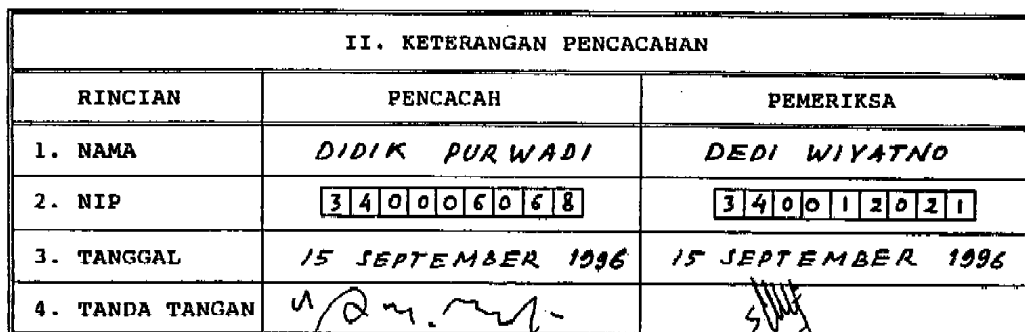 II. KETERANGAN PENCACAHAN
RINCIAN PENCACAH PEMERIKSA
1. NAMA DIDIK PURWADI DEDI WIYATNO
2. NIP 340006068 340012021
3. TANGGAL 15 SEPTEMBER 1996 15 SEPTEMBER 1996
4. TANDA TANGAN